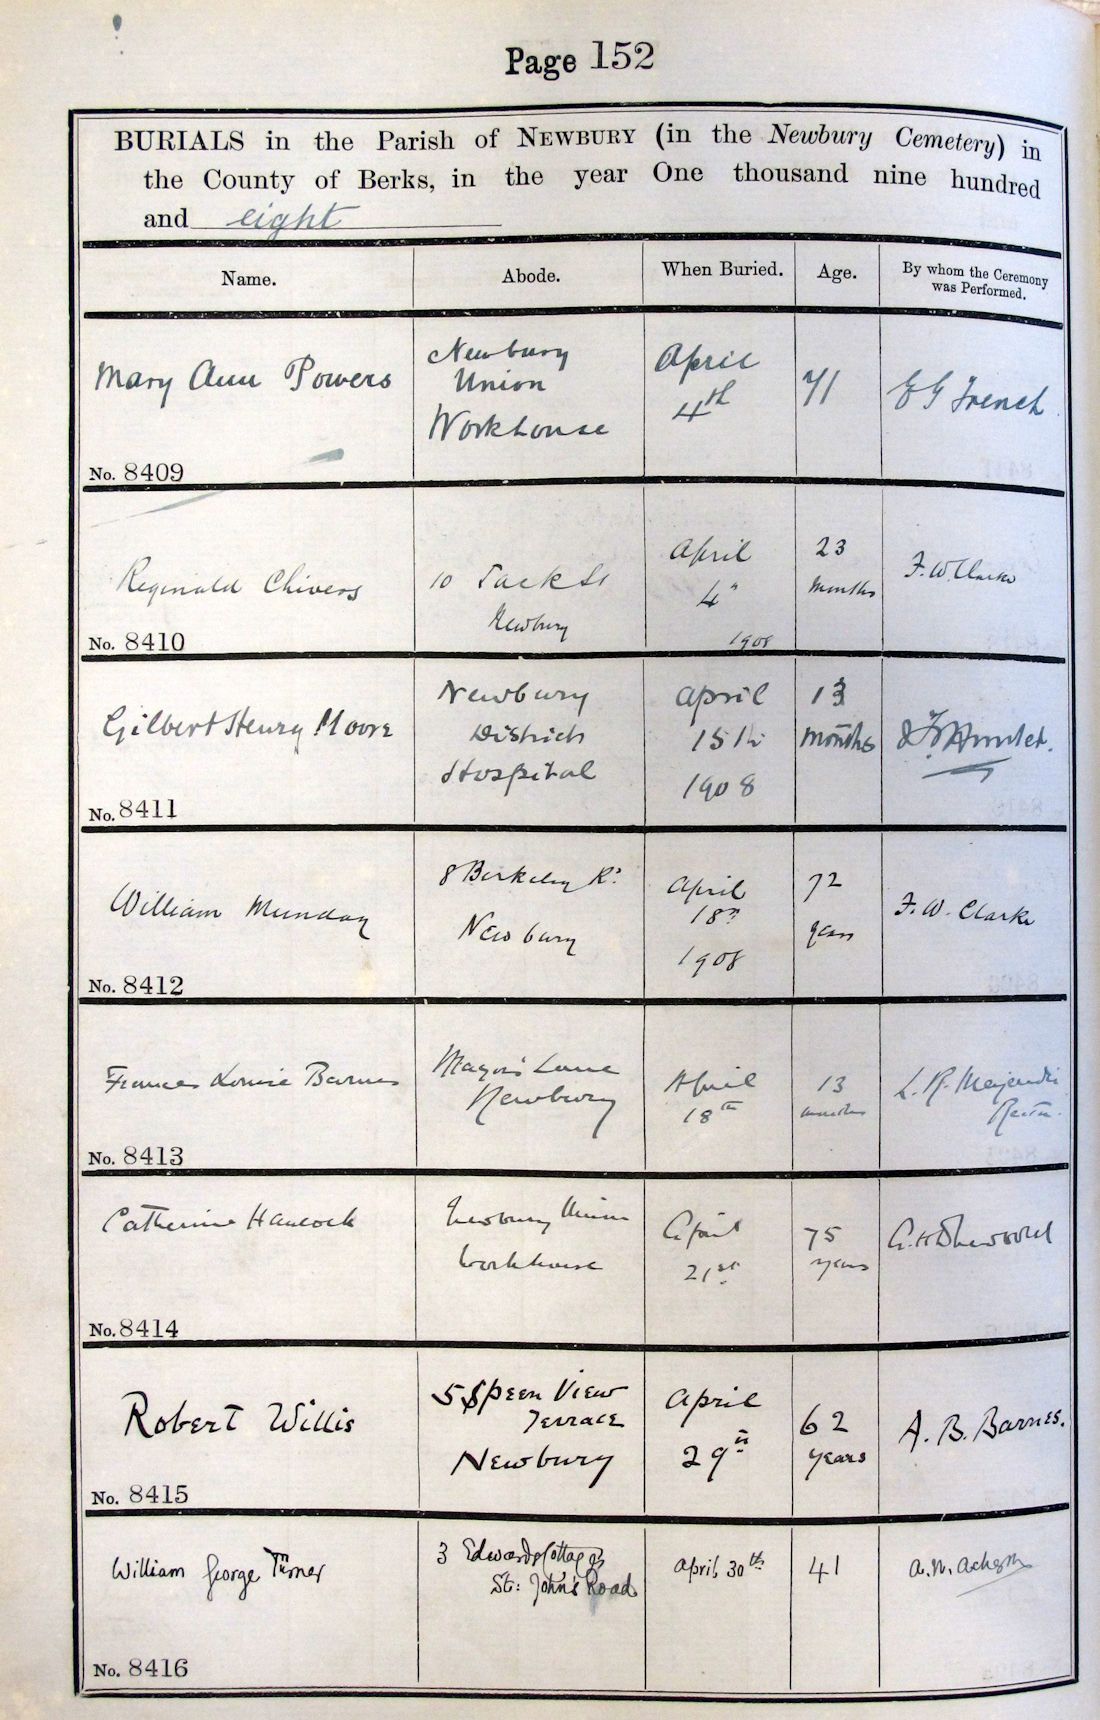 Page 152
BURIALS in the Parish of NEWBURY (in the Newbury Cemetery) in
the County of Berks, in the year One thousand nine hundred
and eight
Name.
Abode.
When Buried.
Age.
By whom the Ceremony
was Performed.
Mary Ann Powers
Newbury
Union
Workhouse
April
4th
71
E G French
No. 8409
Reginald Chivers
10 Jack St
Newbury
April
4"
1908
23
months
F. W. Clarke
No. 8410
Gilbert Henry Moore
Newbury
District
Hospital
April
15th
1908
13
months
No. 8411
William Munday
8 Berkeley Rd
Newbury
April
18th
1908
72
years
F. W. Clarke
No. 8412
Frances Louise Barnes
Mayors Lane
Newbury
April
18th
13
months
L. R. Majendie
Rector
No. 8413
Catherine Hancock
Newbury Union
Workhouse
April
21st
75
years
No. 8414
Robert Willis
5 Speen View
Terrace
Newbury
April
29th
62
years
A. B. Barnes.
No. 8415
William George Turner
3 Edwards Cottages
St: John's Road
April 30th
41
No. 8416